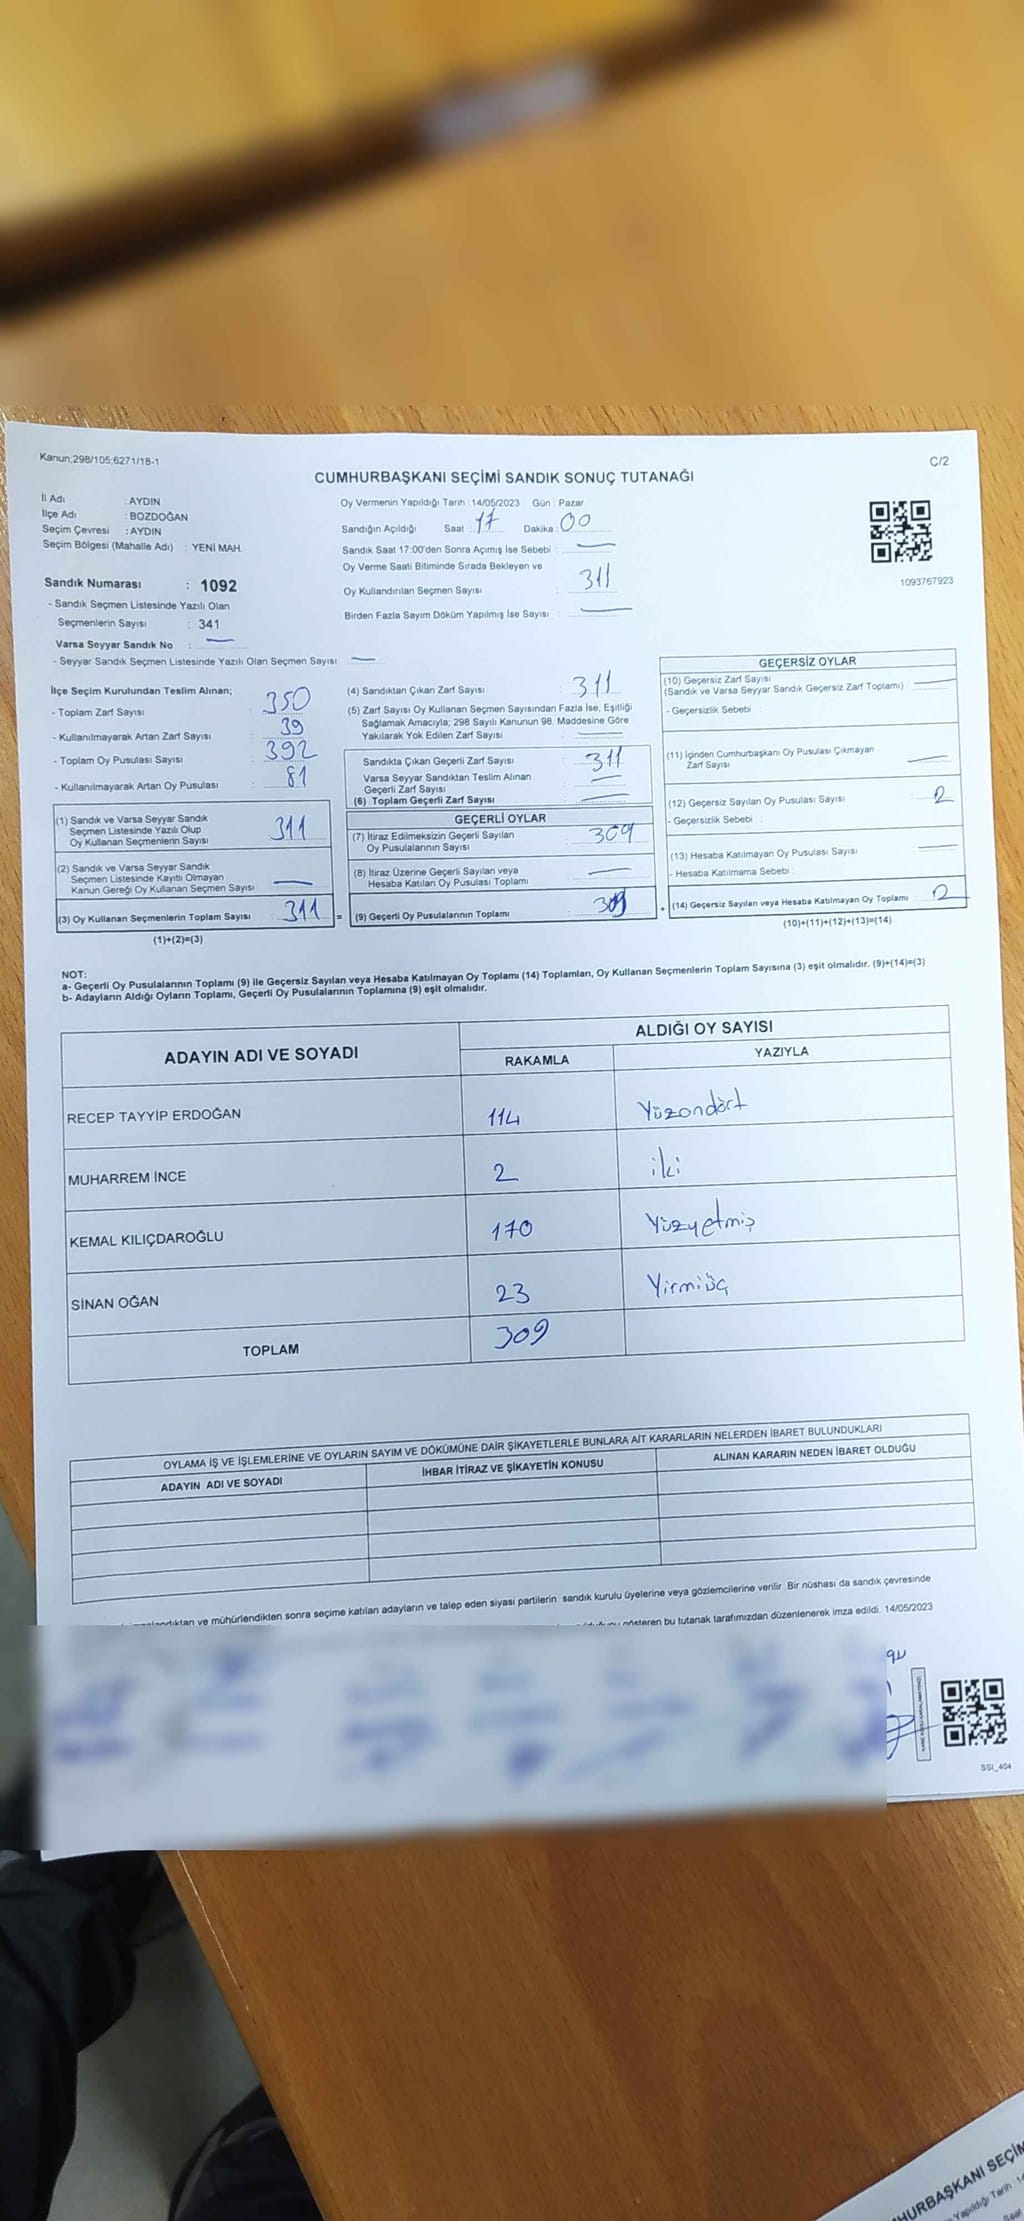 Kanun;298/105;6271/18-1
C/2
CUMHURBAŞKANI SEÇİMİ SANDIK SONUÇ TUTANAĞI
İl Adı : AYDIN
İlçe Adı : BOZDOĞAN
Seçim Çevresi : AYDIN
Seçim Bölgesi (Mahalle Adı) : YENİ MAH.
Oy Vermenin Yapıldığı Tarih : 14/05/2023 Gün : Pazar
Sandığın Açıldığı Saat : 17 Dakika : 00
Sandık Saat 17:00'den Sonra Açımış İse Sebebi : —
Oy Verme Saati Bitiminde Sırada Bekleyen ve
Oy Kullandırılan Seçmen Sayısı : 311
Birden Fazla Sayım Döküm Yapılmış İse Sayısı : —
1093767923
Sandık Numarası : 1092
- Sandık Seçmen Listesinde Yazılı Olan
Seçmenlerin Sayısı : 341
Varsa Seyyar Sandık No : —
- Seyyar Sandık Seçmen Listesinde Yazılı Olan Seçmen Sayısı : —
İlçe Seçim Kurulundan Teslim Alınan;
- Toplam Zarf Sayısı : 350
- Kullanılmayarak Artan Zarf Sayısı : 39
- Toplam Oy Pusulası Sayısı : 392
- Kullanılmayarak Artan Oy Pusulası : 81
(1) Sandık ve Varsa Seyyar Sandık
Seçmen Listesinde Yazılı Olup
Oy Kullanan Seçmenlerin Sayısı : 311
(2) Sandık ve Varsa Seyyar Sandık
Seçmen Listesinde Kayıtlı Olmayan
Kanun Gereği Oy Kullanan Seçmen Sayısı : —
(3) Oy Kullanan Seçmenlerin Toplam Sayısı : 311 =
(1)+(2)=(3)
(4) Sandıktan Çıkan Zarf Sayısı : 311
(5) Zarf Sayısı Oy Kullanan Seçmen Sayısından Fazla İse, Eşitliği
Sağlamak Amacıyla; 298 Sayılı Kanunun 98. Maddesine Göre
Yakılarak Yok Edilen Zarf Sayısı : —
Sandıkta Çıkan Geçerli Zarf Sayısı : 311
Varsa Seyyar Sandıktan Teslim Alınan
Geçerli Zarf Sayısı : —
(6) Toplam Geçerli Zarf Sayısı : —
GEÇERLİ OYLAR
(7) İtiraz Edilmeksizin Geçerli Sayılan
Oy Pusulalarının Sayısı : 309
(8) İtiraz Üzerine Geçerli Sayılan veya
Hesaba Katılan Oy Pusulası Toplamı : —
(9) Geçerli Oy Pusulalarının Toplamı : 309 +
GEÇERSİZ OYLAR
(10) Geçersiz Zarf Sayısı
(Sandık ve Varsa Seyyar Sandık Geçersiz Zarf Toplamı) : —
- Geçersizlik Sebebi :
(11) İçinden Cumhurbaşkanı Oy Pusulası Çıkmayan
Zarf Sayısı : —
(12) Geçersiz Sayılan Oy Pusulası Sayısı : 2
- Geçersizlik Sebebi :
(13) Hesaba Katılmayan Oy Pusulası Sayısı : —
- Hesaba Katılmama Sebebi :
(14) Geçersiz Sayılan veya Hesaba Katılmayan Oy Toplamı : 2
(10)+(11)+(12)+(13)=(14)
NOT:
a- Geçerli Oy Pusulalarının Toplamı (9) ile Geçersiz Sayılan veya Hesaba Katılmayan Oy Toplamı (14) Toplamları, Oy Kullanan Seçmenlerin Toplam Sayısına (3) eşit olmalıdır. (9)+(14)=(3)
b- Adayların Aldığı Oyların Toplamı, Geçerli Oy Pusulalarının Toplamına (9) eşit olmalıdır.
ADAYIN ADI VE SOYADI
ALDIĞI OY SAYISI
RAKAMLA YAZIYLA
RECEP TAYYİP ERDOĞAN 114 Yüzondört
MUHARREM İNCE 2 iki
KEMAL KILIÇDAROĞLU 170 Yüzyetmiş
SİNAN OĞAN 23 Yirmiüç
TOPLAM 309
OYLAMA İŞ VE İŞLEMLERİNE VE OYLARIN SAYIM VE DÖKÜMÜNE DAİR ŞİKAYETLERLE BUNLARA AİT KARARLARIN NELERDEN İBARET BULUNDUKLARI
ADAYIN ADI VE SOYADI İHBAR İTİRAZ VE ŞİKAYETİN KONUSU ALINAN KARARIN NEDEN İBARET OLDUĞU
ve mühürlendikten sonra seçime katılan adayların ve talep eden siyasi partilerin sandık kurulu üyelerine veya gözlemcilerine verilir. Bir nüshası da sandık çevresinde
gösteren bu tutanak tarafımızdan düzenlenerek imza edildi. 14/05/2023
SSI_404
CUMHURBAŞKANI SEÇİM
Yapıldığı Tarih
Saat